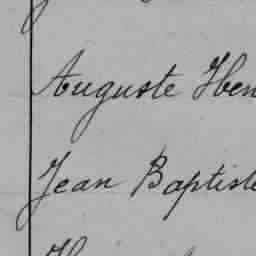 Auguste Hen
Jean Baptiste